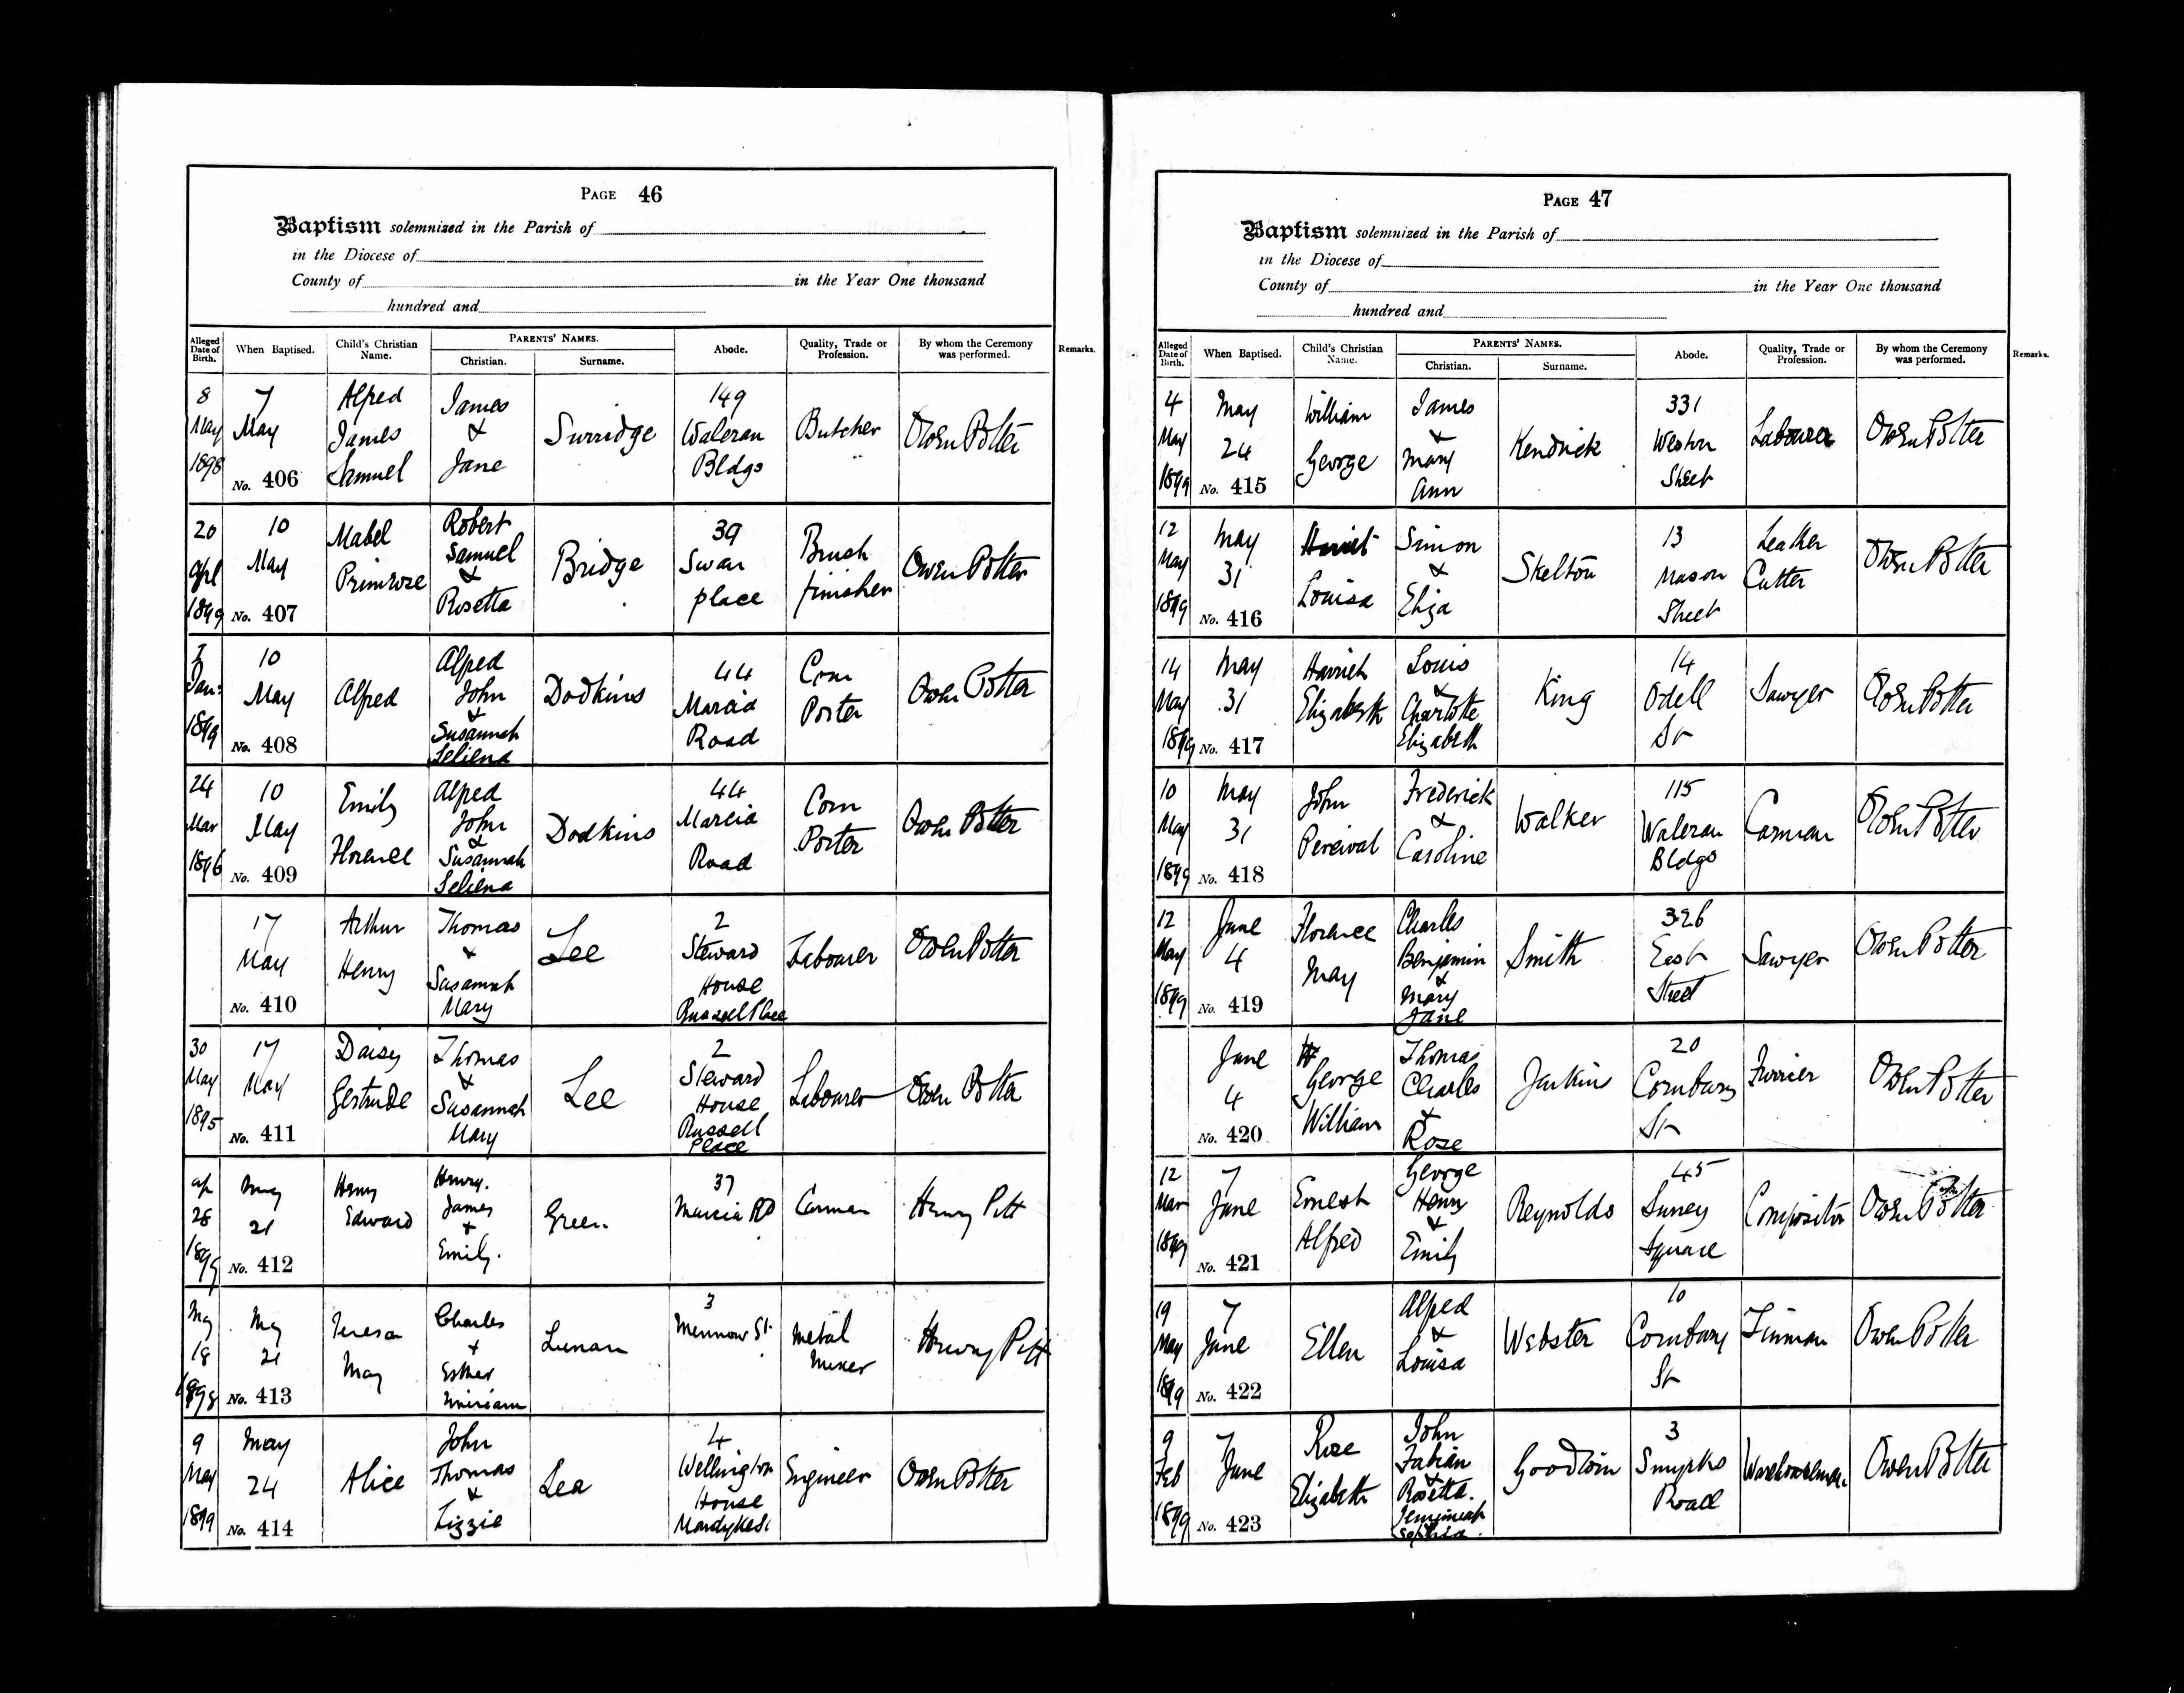 PAGE 46
Baptism solemnized in the Parish of
in the Diocese of
County of in the Year One thousand
hundred and
Alleged Date of Birth. When Baptised. Child's Christian Name. PARENTS' NAMES. Christian. Surname. Abode. Quality, Trade or Profession. By whom the Ceremony was performed. Remarks.
8 May 1898 7 May No. 406 Alfred James Samuel James & Jane Surridge 149 Waleran Bldgs Butcher Owen Potter
20 Apl 1899 10 May No. 407 Mabel Primrose Robert Samuel & Rosetta Bridge 39 Swan place Brush finisher Owen Potter
Jan: 1899 10 May No. 408 Alfred Alfred John & Susannah Seliena Dodkins 44 Marcia Road Corn Porter Owen Potter
24 Mar 1896 10 May No. 409 Emily Florence Alfred John & Susannah Seliena Dodkins 44 Marcia Road Corn Porter Owen Potter
17 May No. 410 Arthur Henry Thomas & Susannah Mary Lee 2 Steward House Russell Place Labourer Owen Potter
30 May 1895 17 May No. 411 Daisy Gertrude Thomas & Susannah Mary Lee 2 Steward House Russell Place Labourer Owen Potter
ap 28 1899 May 21 No. 412 Henry Edward Henry. James + Emily. Green 37 Marcia Rd Carman Henry Pitt
May 18 1898 May 21 No. 413 Teresa May Charles + Esther Miriam Lunan 3 St. Metal Mixer Henry Pitt
9 May 1899 May 24 No. 414 Alice John Thomas & Lizzie Lea 4 Wellington House Engineer Owen Potter
PAGE 47
Baptism solemnized in the Parish of
in the Diocese of
County of in the Year One thousand
hundred and
Alleged Date of Birth. When Baptised. Child's Christian Name. PARENTS' NAMES. Christian. Surname. Abode. Quality, Trade or Profession. By whom the Ceremony was performed. Remarks.
4 May 1899 May 24 No. 415 William George James & Mary Ann Kendrick 331 Weston Street Labourer Owen Potter
12 May 1899 May 31 No. 416 Louisa Simon & Eliza Skelton 13 Mason Street Leather Cutter Owen Potter
14 May 1899 May 31 No. 417 Harriet Elizabeth Louis & Charlotte Elizabeth King 14 Odell St Sawyer Owen Potter
10 May 1899 May 31 No. 418 John Percival Frederick & Caroline Walker 115 Waleran Bldgs Carman Owen Potter
12 May 1899 June 4 No. 419 Florence May Charles Benjamin & Mary Jane Smith 326 East Street Sawyer Owen Potter
June 4 No. 420 George William Thomas Charles & Rose Jarkins 20 Cornbury St Furrier Owen Potter
12 Mar 1899 7 June No. 421 Ernest Alfred George Henry & Emily Reynolds 45 Surrey Square Compositor Owen Potter
19 May 1899 7 June No. 422 Ellen Alfred & Louisa Webster 10 Cornbury St Owen Potter
9 Feb 1899 7 June No. 423 Rose Elizabeth John Fabian & Rosetta. Jemimiah Sophia. Goodwin 3 Smyrks Road Warehouseman Owen Potter